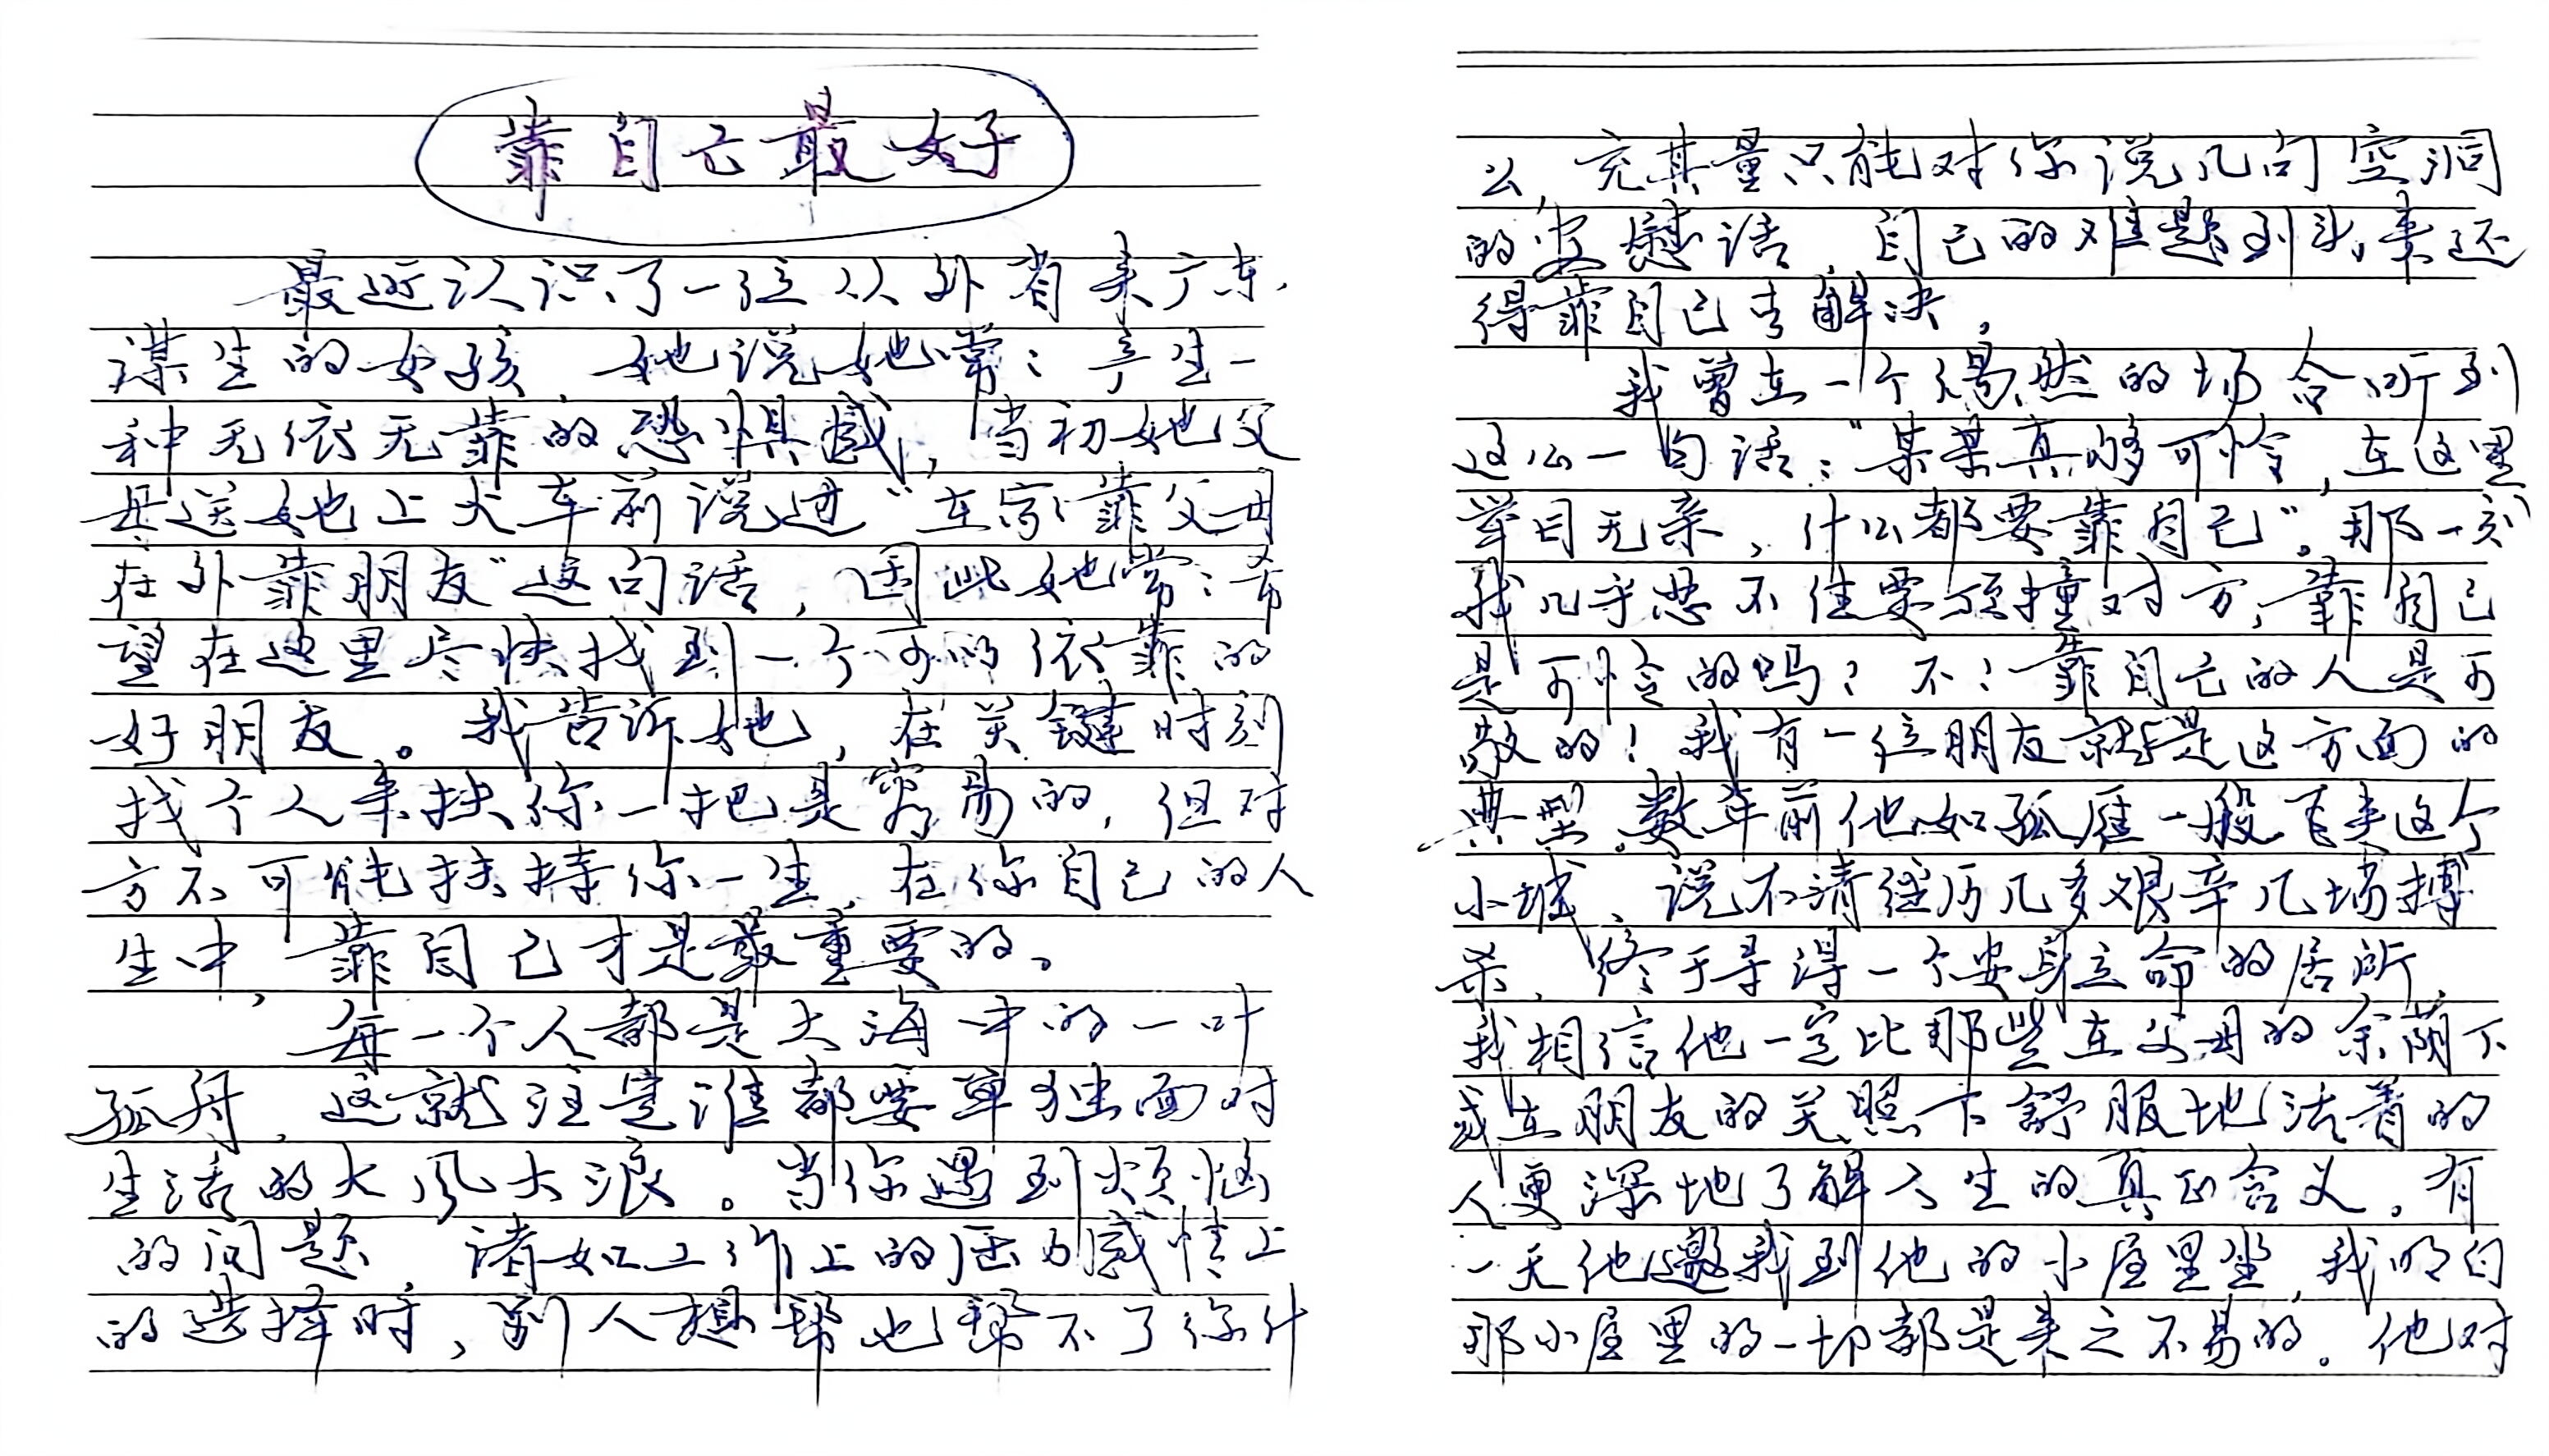 靠自己最好
最近认识了一位从外省来广东
谋生的女孩 她说她常：产生一
种无依无靠的恐惧感，当初她父
母送她上火车前说过“在家靠父母
在外靠朋友”这句话，因此她常：希
望在这里尽快找到一个可以依靠的
好朋友。我告诉她，在关键时刻
找个人来扶你一把是容易的，但对
方不可能扶持你一生，在你自己的人
生中，靠自己才是最重要的。
每一个人都是大海中的一叶
孤舟，这就注定谁都要单独面对
生活的大风大浪。当你遇到烦恼
的问题 诸如工作上的压力感情上
的选择时，别人想帮也帮不了你什
么，充其量只能对你说几句空洞
的安慰话，自己的难题到头来还
得靠自己去解决。
我曾在一个偶然的场合听到
这么一句话：“某某真够可怜，在这里
举目无亲，什么都要靠自己”。那一刻
我几乎忍不住要顶撞对方，靠自己
是可怜的吗？不！靠自己的人是可
敬的！我有一位朋友就是这方面的
典型，数年前他如孤雁一般飞来这个
小城，说不清经历几多艰辛几场搏
杀，终于寻得一个安身立命的居所，
我相信他一定比那些在父母的余荫下
或在朋友的关照下舒服地活着的
人更深地了解人生的真正含义。有
一天他邀我到他的小屋里坐，我明白
那小屋里的一切都是来之不易的。他对